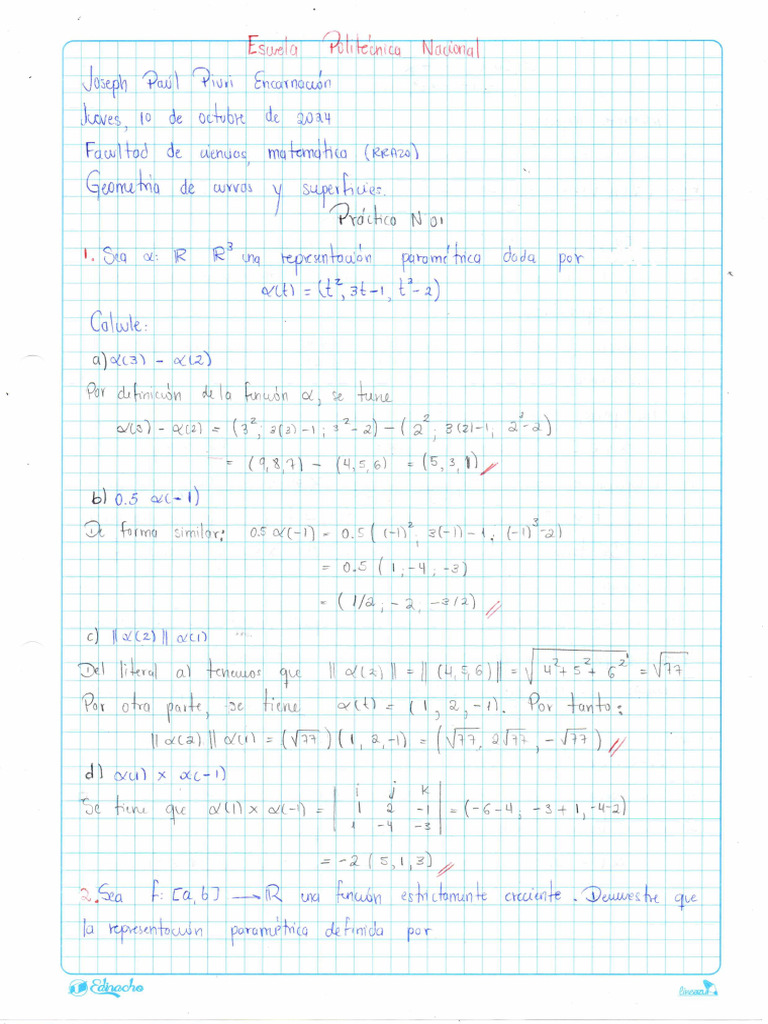 Escuela Politécnica Nacional
Joseph Paúl Piuri Encarnación
Jueves, 10 de octubre de 2024
Facultad de ciencias, matemática (RRAZO)
Geometría de curvas y superficies.
Práctica N 01
1. Sea α: ℝ ℝ³ una representación paramétrica dada por
α(t) = (t², 3t-1, t³-2)
Calcule:
a) α(3) - α(2)
Por definición de la función α, se tiene
α(3) - α(2) = (3²; 3(3)-1; 3²-2) - (2²; 3(2)-1; 2³-2)
= (9,8,7) - (4,5,6) = (5,3,1)
b) 0.5 α(-1)
De forma similar: 0.5 α(-1) = 0.5 ((-1)²; 3(-1)-1; (-1)³-2)
= 0.5 (1; -4; -3)
= (1/2; -2, -3/2)
c) ||α(2)|| α(1)
Del literal a) tenemos que ||α(2)|| = ||(4,5,6)|| = √(4²+5²+6²) = √77
Por otra parte, se tiene α(t) = (1, 2, -1). Por tanto:
||α(2)|| α(1) = (√77)(1, 2, -1) = (√77, 2√77, -√77)
d) α(1) × α(-1)
i j k
Se tiene que α(1) × α(-1) = | 1 2 -1 | = (-6-4; -3+1, -4-2)
1 -4 -3
= -2 (5,1,3)
2. Sea f: [a,b] → ℝ una función estrictamente creciente. Demuestre que
la representación paramétrica definida por
Edinacho